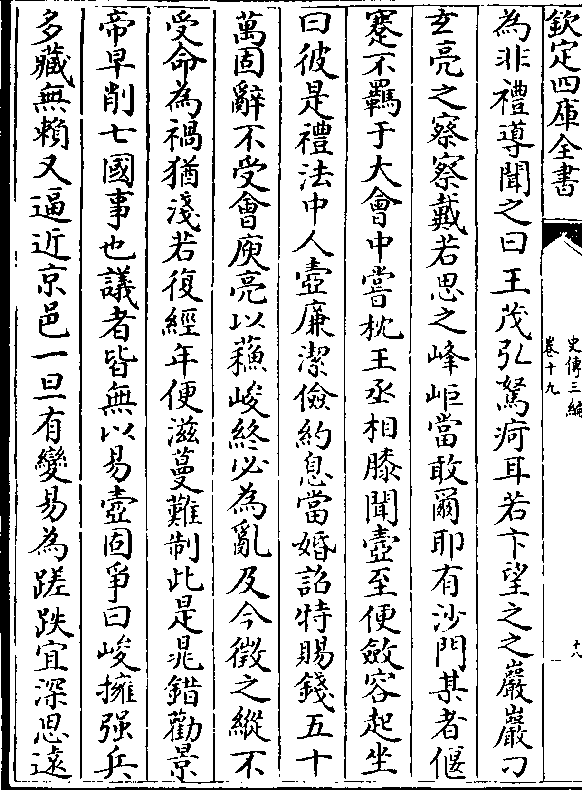 欽定四庫全書
史傳三編
卷十九
十八
為非禮導聞之曰王茂弘駑痾耳若卞望之之巖巖刁
玄亮之察察戴若思之峰岠當敢爾耶有沙門某者偃
蹇不羈于大會中嘗枕王丞相膝聞壼至便斂容起坐
曰彼是禮法中人壼廉潔儉約息當婚詔特賜錢五十
萬固辭不受會庾亮以蘓峻終必為亂及今徵之縱不
受命為禍猶淺若復經年便滋蔓難制此是晁錯勸景
帝早削七國事也議者皆無以易壼固爭曰峻擁强兵
多藏無賴又逼近京邑一旦有變易為蹉跌宜深思遠